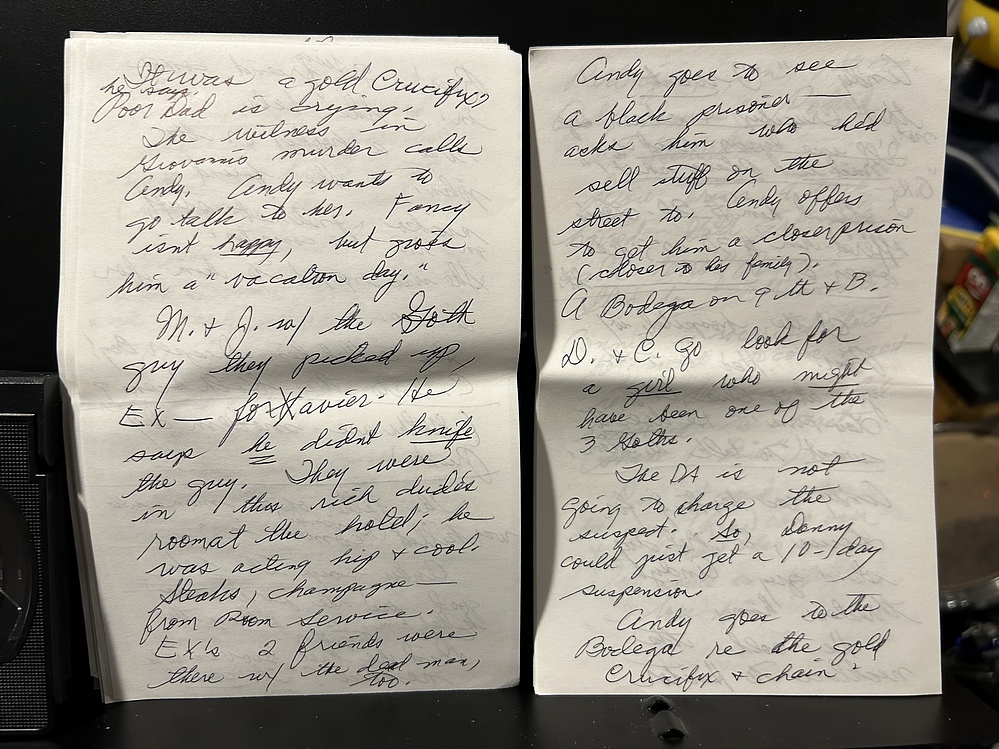 It was a gold Crucifix?
he says.
Poor Dad is crying.
The witness in
Giovannis murder calls
Andy. Andy wants to
go talk to her. Fancy
isnt happy, but gives
him a "vacation day."
M. & J. w/ the Goth
guy they picked up,
EX — for Xavier. He
says he didnt knife
the guy. They were
in this rich dude's
room at the hotel; he
was acting hip & cool.
Steaks, champagne —
from Room Service.
EX's 2 friends were
there w/ the dead man,
too.
Andy goes to see
a black prisoner —
asks him who he'd
sell stuff on the
street to. Andy offers
to get him a closer prison
(closer to his family).
A Bodega on 9th & B.
D. & C. go look for
a girl who might
have been one of the
3 Goths.
The DA is not
going to charge the
suspect. So, Danny
could just get a 10-day
suspension.
Andy goes to the
Bodega re the gold
Crucifix & chain